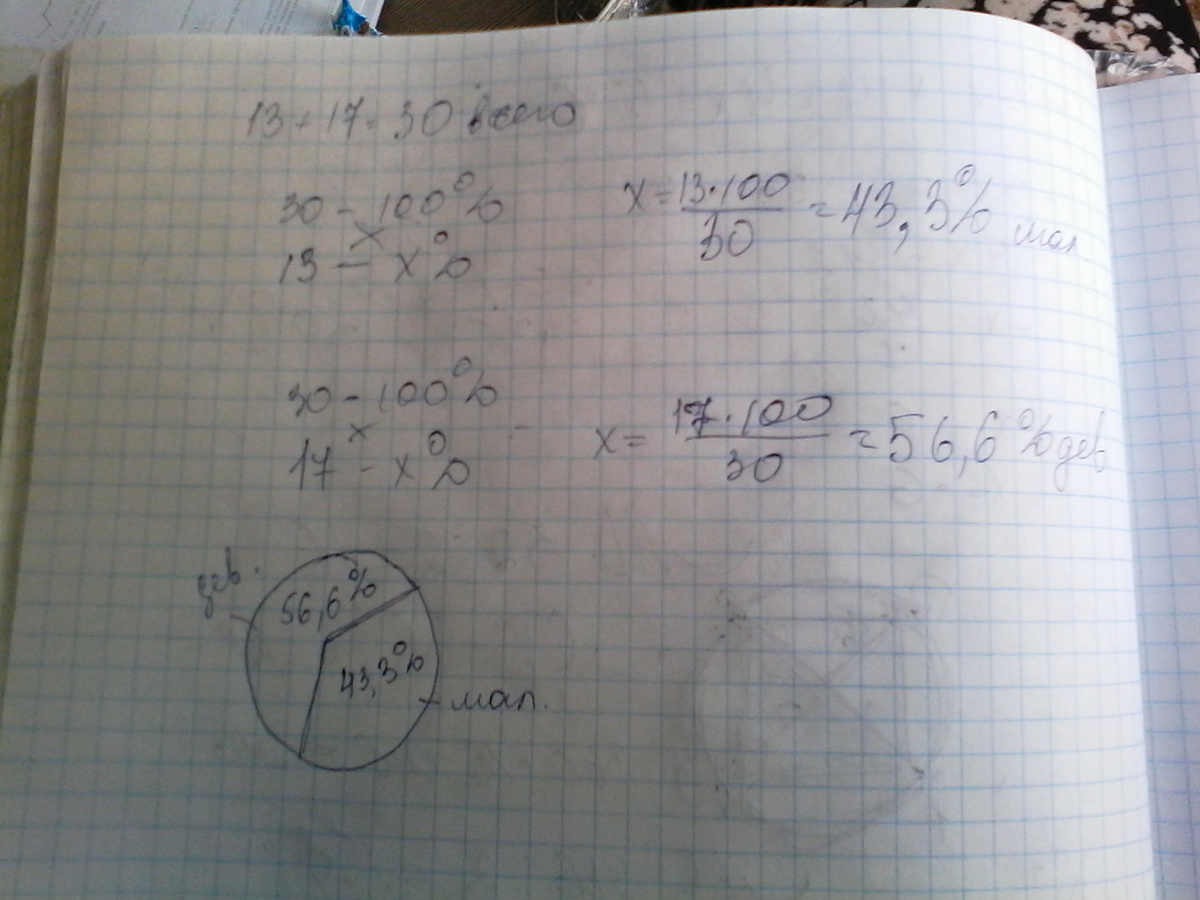 13+17=30 всего
30 - 100%
13 - x%
x = 13·100 / 30 = 43,3% мал
30 - 100%
17 - x%
x = 17·100 / 30 = 56,6% дев
дев.
56,6%
43,3%
мал.